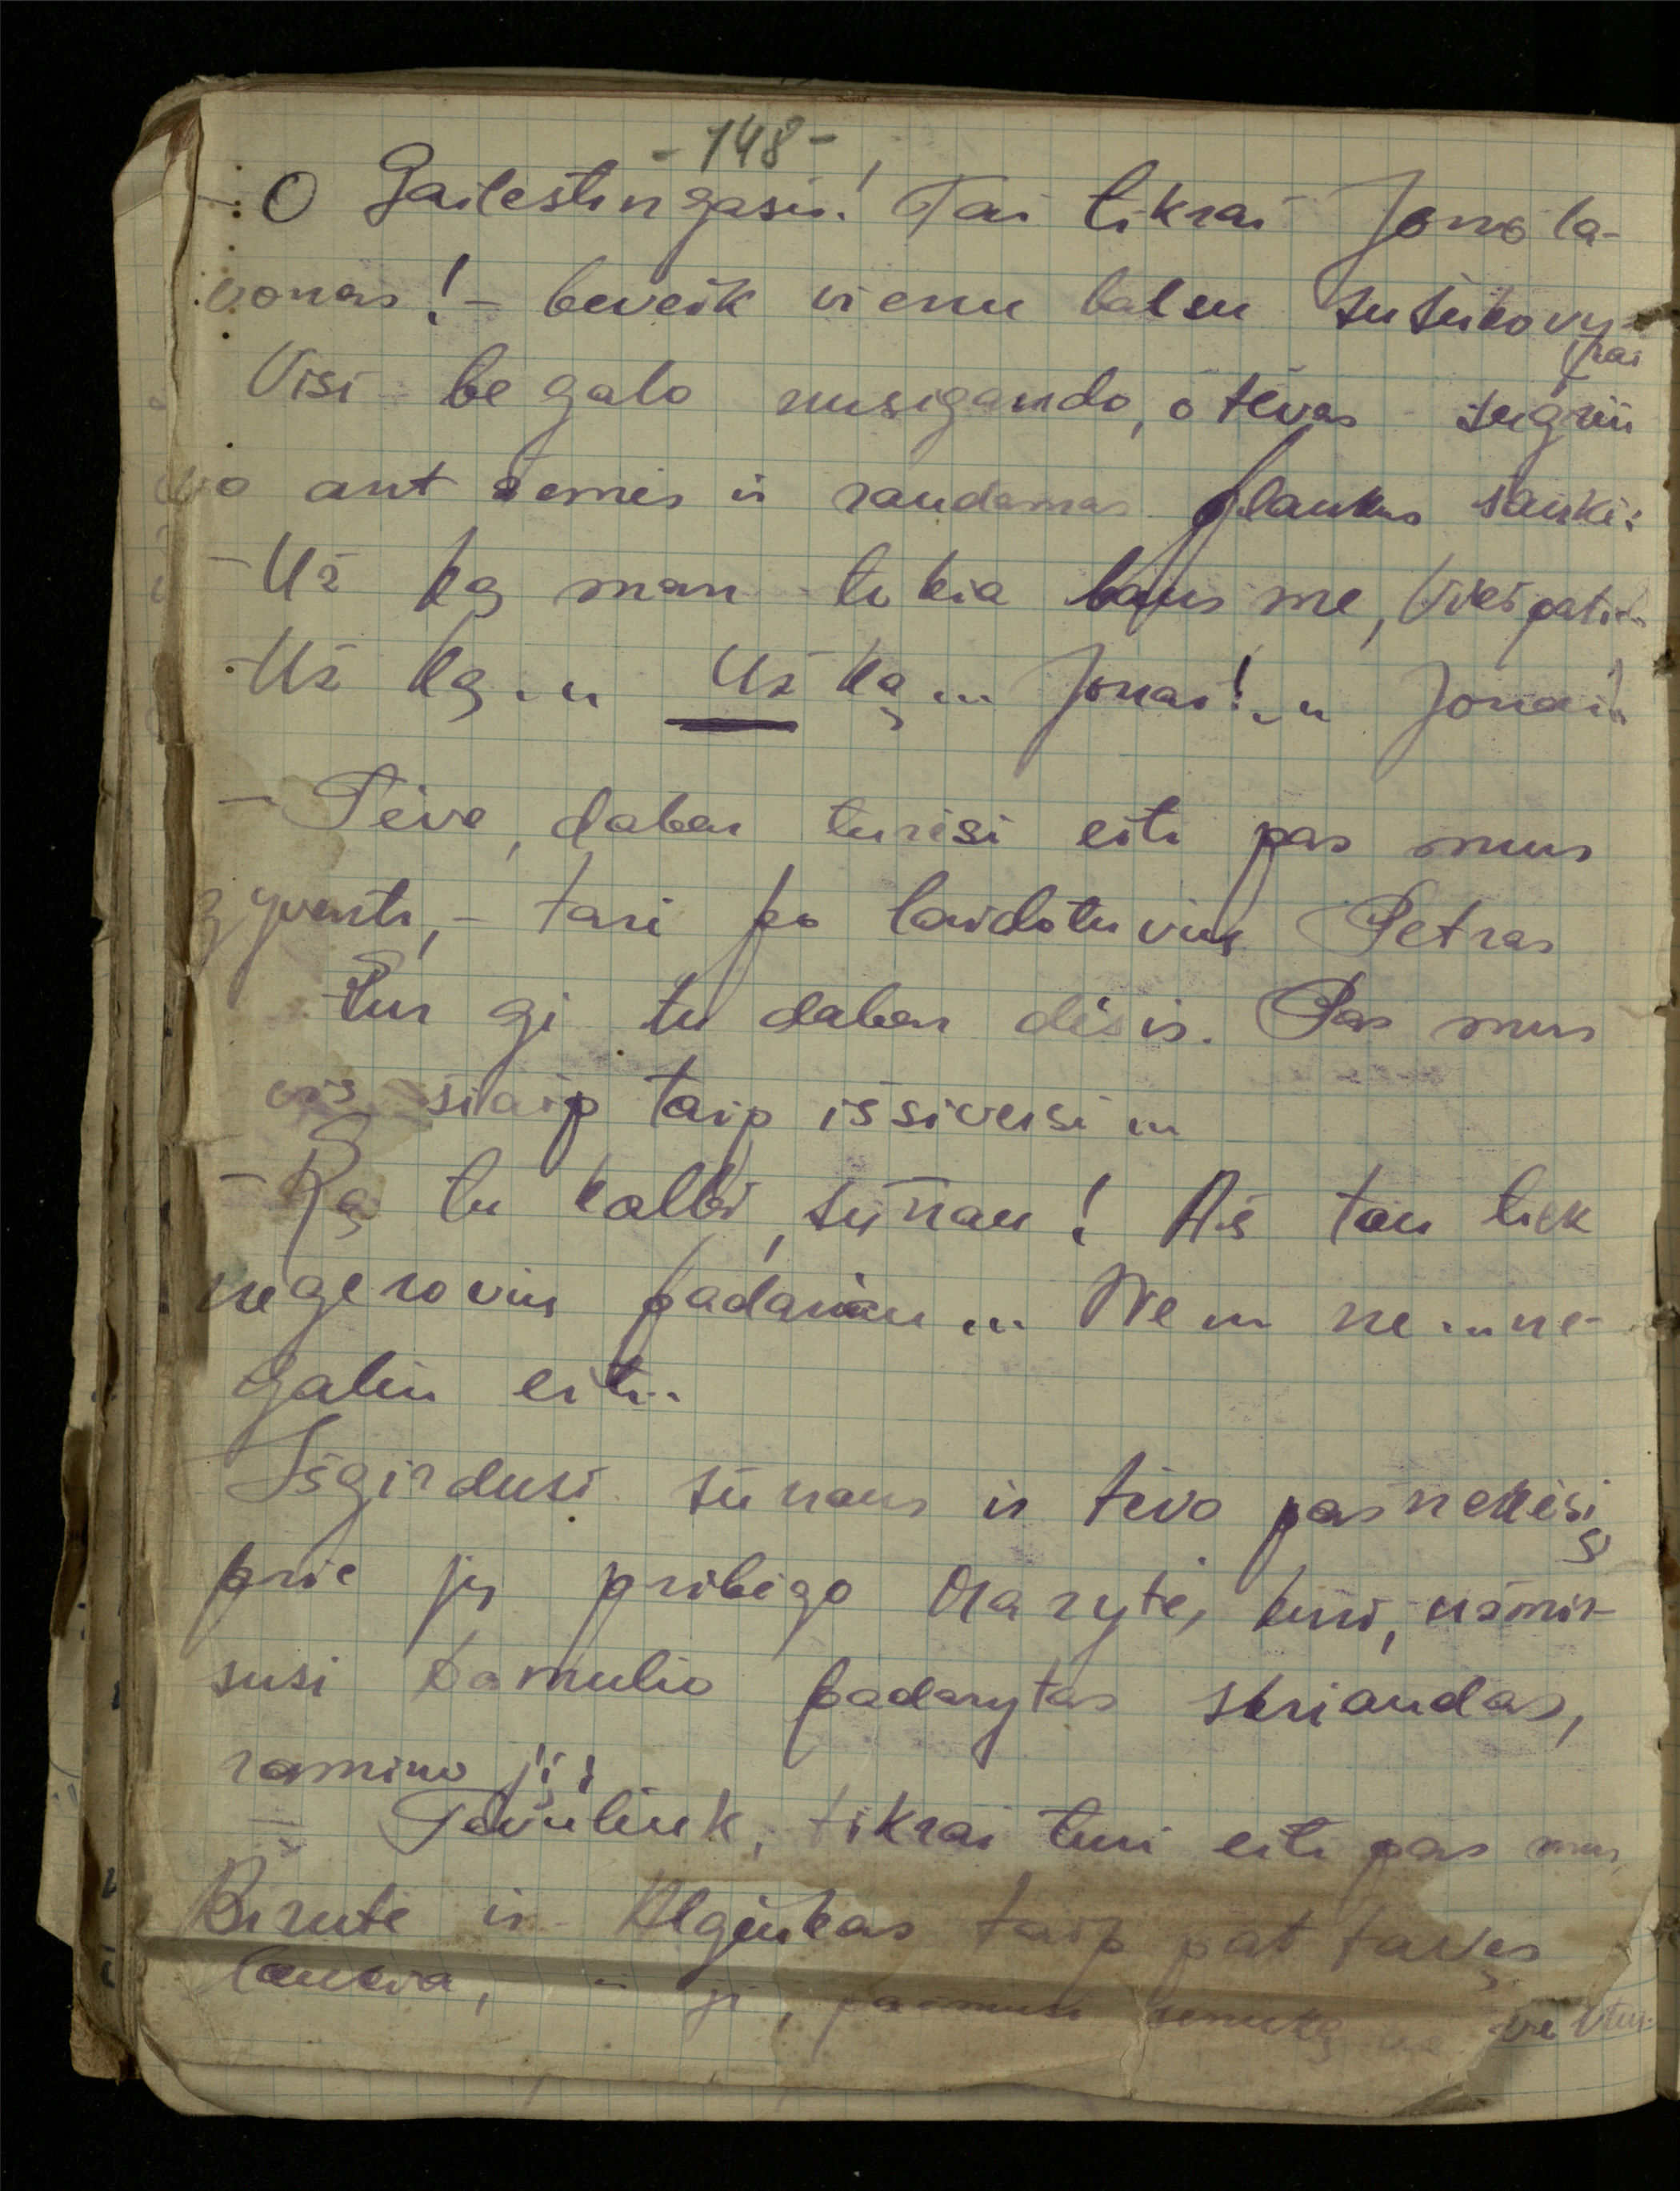 - 148 -
- O Gailestingasis! Tai tikrai Jono la-
vonas! - beveik vienu balsu sušuko vy-
rai
Visi be galo nusigando, o tėvas sugriu
vo ant žemės ir raudamas plaukus šaukė:
- Už ką man tokia bausmė, Viešpatie
- Už ką... Už ką... Jonai!... Jonai!
- Tėve, dabar turėsi eiti pas mus
gyventi, - tarė po laidotuvių Petras
Kur gi tu dabar dėsis. Pas mus
vis šiaip taip išsiversi...
- Ką tu kalbi, sūnau! Aš tau tiek
negerovių padariau... Ne... ne... ne-
galiu eiti..
Išgirdusi sūnaus ir tėvo pašnekesį
prie jų pribėgo Marytė, kuri, užmir-
susi pamulio padarytas skriaudas,
ramino jį:
- Tėvuliuk, tikrai turi eiti pas mus
Birutė ir Algiukas taip pat tavęs
laukia, - ji, paėmusi senuką